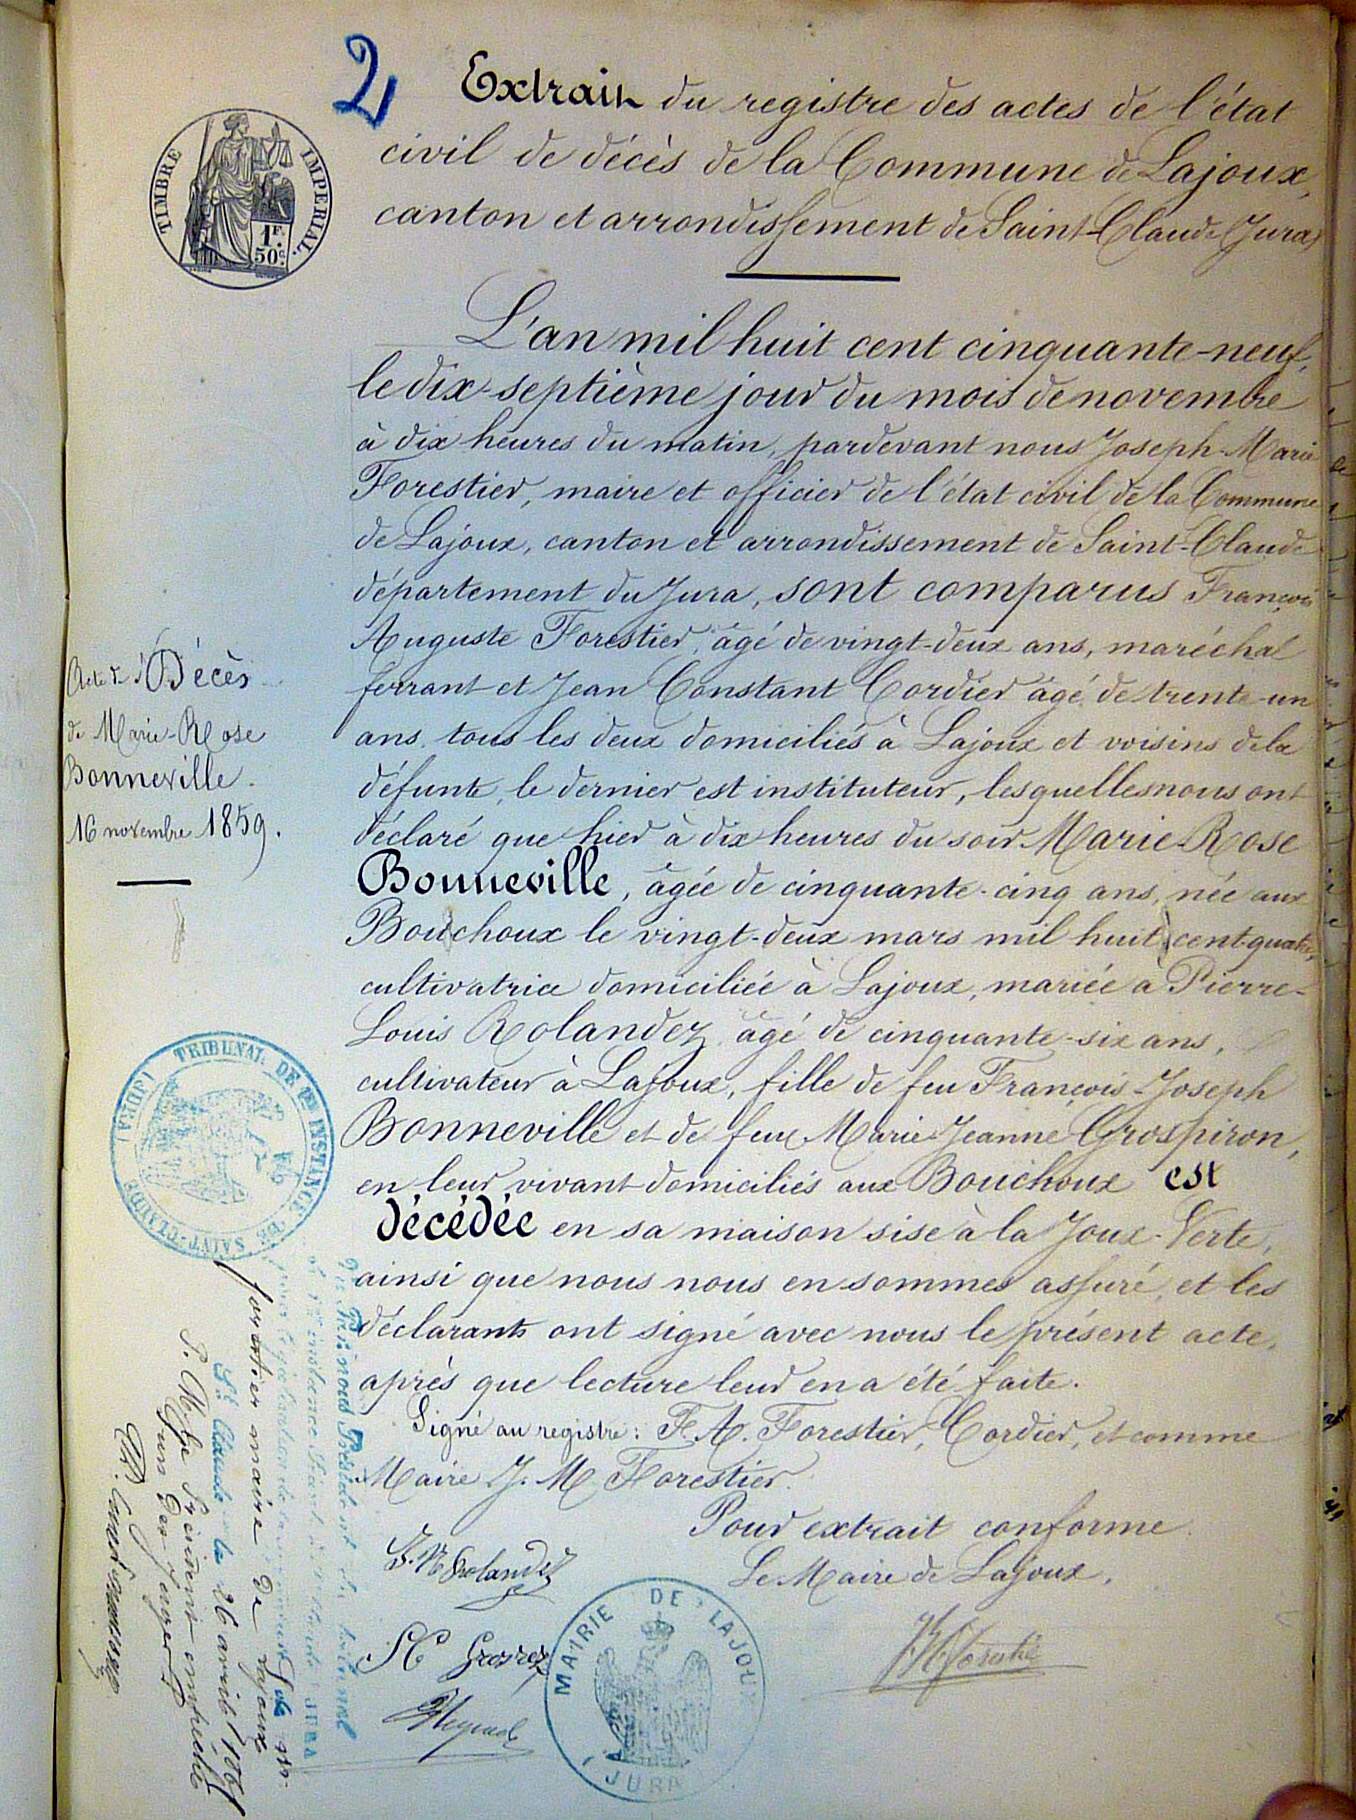 2
Extrait du registre des actes de l'état
civil de décès de la Commune de Lajoux,
canton et arrondissement de Saint-Claude (Jura)
TIMBRE IMPERIAL
1F.
50c.
L'an mil huit cent cinquante-neuf,
le dix-septième jour du mois de novembre
à dix heures du matin, pardevant nous Joseph-Marie
Forestier, maire et officier de l'état civil de la Commune
de Lajoux, canton et arrondissement de Saint-Claude
département du Jura, sont comparus François
Auguste Forestier, âgé de vingt-deux ans, maréchal
ferrant et Jean Constant Cordier âgé de trente-un
ans, tous les deux domiciliés à Lajoux et voisins de la
défunte, le dernier est instituteur, lesquelles nous ont
déclaré que hier à dix heures du soir Marie-Rose
Bonneville, âgée de cinquante-cinq ans, née aux
Bouchoux le vingt-deux mars mil huit cent quatre,
cultivatrice domiciliée à Lajoux, mariée à Pierre-
Louis Rolandez âgé de cinquante-six ans,
cultivateur à Lajoux, fille de feu François-Joseph
Bonneville et de feue Marie-Jeanne Grospiron,
en leur vivant domiciliés aux Bouchoux est
décédée en sa maison sise à la Joux-Verte,
ainsi que nous nous en sommes assuré, et les
déclarants ont signé avec nous le présent acte,
après que lecture leur en a été faite.
Signé au registre: F. A. Forestier, Cordier, et comme
Maire J. M. Forestier.
Pour extrait conforme
Le Maire de Lajoux,
Acte de Décès
de Marie-Rose
Bonneville.
16 novembre 1859.
TRIBUNAL DE 1ERE INSTANCE DE SAINT-CLAUDE (JURA)
MAIRIE DE LAJOUX
JURA
Président du tribunal
forestier maire de Lajoux
St Claude le 26 avril 1861
Président empêché